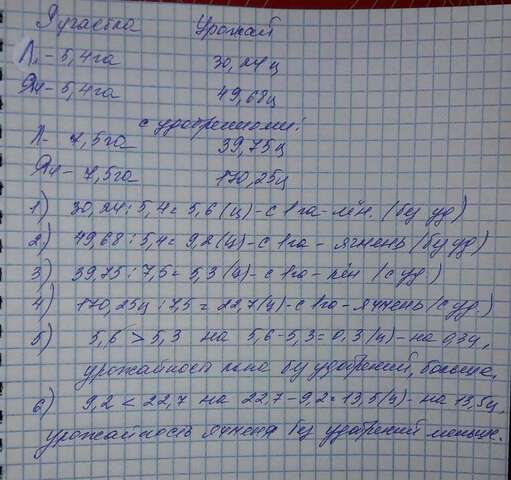 S участка Урожай
Л. - 5,4 га 30,24 ц
Яч - 5,4 га 49,68 ц
с удобрениями:
Л - 7,5 га 39,75 ц
Яч - 7,5 га 170,25 ц
1) 30,24 : 5,4 = 5,6 (ц) - с 1 га - лён. (без уд)
2) 49,68 : 5,4 = 9,2 (ц) - с 1 га - ячмень (без уд)
3) 39,75 : 7,5 = 5,3 (ц) - с 1 га - лён (с уд)
4) 170,25 ц : 7,5 = 22,7 (ц) - с 1 га - ячмень (с уд.)
5) 5,6 > 5,3 на 5,6 - 5,3 = 0,3 (ц) - на 0,3 ц,
урожайность льна без удобрений, больше.
6) 9,2 < 22,7 на 22,7 - 9,2 = 13,5 (ц) - на 13,5 ц.
урожайность ячменя без удобрений меньше.